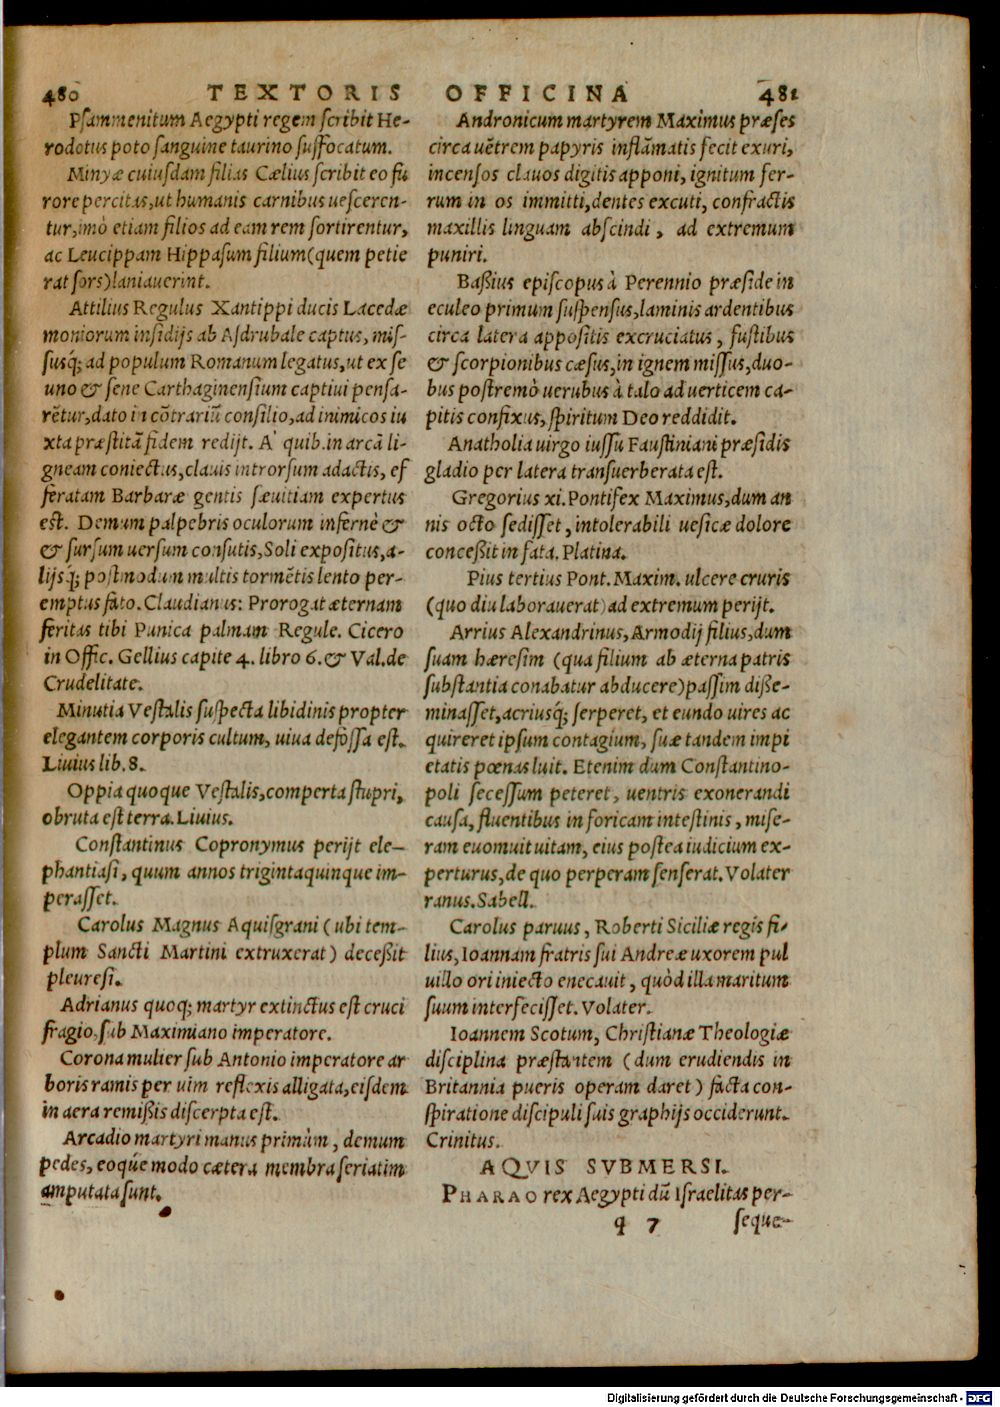 480 TEXTORIS OFFICINA 481
Psammenitum Aegypti regem scribit He-
rodotus poto sanguine taurino suffocatum.
Minyæ cuiusdam filias Cælius scribit eo fu
rore percitas, ut humanis carnibus uesceren-
tur, imò etiam filios ad eam rem sortirentur,
ac Leucippam Hippasum filium (quem petie
rat sors) laniauerint.
Attilius Regulus Xantippi ducis Lacedæ
moniorum insidijs ab Asdrubale captus, mis-
susq́; ad populum Romanum legatus, ut ex se
uno & sene Carthaginensium captiui pensa-
rētur, dato in cōtrariū consilio, ad inimicos iu
xta præstitā fidem redijt. A' quib. in arcā li-
gneam coniectus, clauis introrsum adactis, ef
feratam Barbaræ gentis sæuitiam expertus
est. Demum palpebris oculorum infernè &
& sursum uersum consutis, Soli expositus, a-
lijsq́; postmodum multis tormētis lento per-
emptus fato. Claudianus: Prorogat æternam
feritas tibi Punica palmam Regule. Cicero
in Offic. Gellius capite 4. libro 6. & Val. de
Crudelitate.
Minutia Vestalis suspecta libidinis propter
elegantem corporis cultum, uiua defossa est.
Liuius lib. 8.
Oppia quoque Vestalis, comperta stupri,
obruta est terra. Liuius.
Constantinus Copronymus perijt ele-
phantiasi, quum annos trigintaquinque im-
perasset.
Carolus Magnus Aquisgrani (ubi tem-
plum Sancti Martini extruxerat) decessit
pleuresi.
Adrianus quoq; martyr extinctus est cruci
fragio, sub Maximiano imperatore.
Corona mulier sub Antonio imperatore ar
boris ramis per uim reflexis alligata, eisdem
in aera remißis discerpta est.
Arcadio martyri manus primùm, demum
pedes, eoque modo cætera membra seriatim
amputata sunt.
Andronicum martyrem Maximus præses
circa uētrem papyris inflāmatis fecit exuri,
incensos clauos digitis apponi, ignitum fer-
rum in os immitti, dentes excuti, confractis
maxillis linguam abscindi, ad extremum
puniri.
Baßius episcopus à Perennio præside in
eculeo primum suspensus, laminis ardentibus
circa latera appositis excruciatus, fustibus
& scorpionibus cæsus, in ignem missus, duo-
bus postremò uerubus à talo ad uerticem ca-
pitis confixus, spiritum Deo reddidit.
Anatholia uirgo iussu Faustiniani præsidis
gladio per latera transuerberata est.
Gregorius xi. Pontifex Maximus, dum an
nis octo sedisset, intolerabili uesicæ dolore
conceßit in fata. Platina.
Pius tertius Pont. Maxim. ulcere cruris
(quo diu laborauerat) ad extremum perijt.
Arrius Alexandrinus, Armodij filius, dum
suam hæresim (qua filium ab æterna patris
substantia conabatur abducere) passim disse-
minasset, acriusq́; serperet, et eundo uires ac
quireret ipsum contagium, suæ tandem impi
etatis pœnas luit. Etenim dum Constantino-
poli secessum peteret, uentris exonerandi
causa, fluentibus in foricam intestinis, mise-
ram euomuit uitam, eius postea iudicium ex-
perturus, de quo perperam senserat. Volater
ranus. Sabell.
Carolus paruus, Roberti Siciliæ regis fi-
lius, Ioannam fratris sui Andreæ uxorem pul
uillo ori iniecto enecauit, quòd illa maritum
suum interfecisset. Volater.
Ioannem Scotum, Christianæ Theologiæ
disciplina præstantem (dum erudiendis in
Britannia pueris operam daret) facta con-
spiratione discipuli suis graphijs occiderunt.
Crinitus.
AQVIS SVBMERSI.
PHARAO rex Aegypti dū Israelitas per-
q 7 seque-
Digitalisierung gefördert durch die Deutsche Forschungsgemeinschaft - DFG